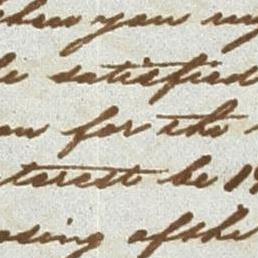 when you my
be satisfied
for the
terest be 19
osing of the